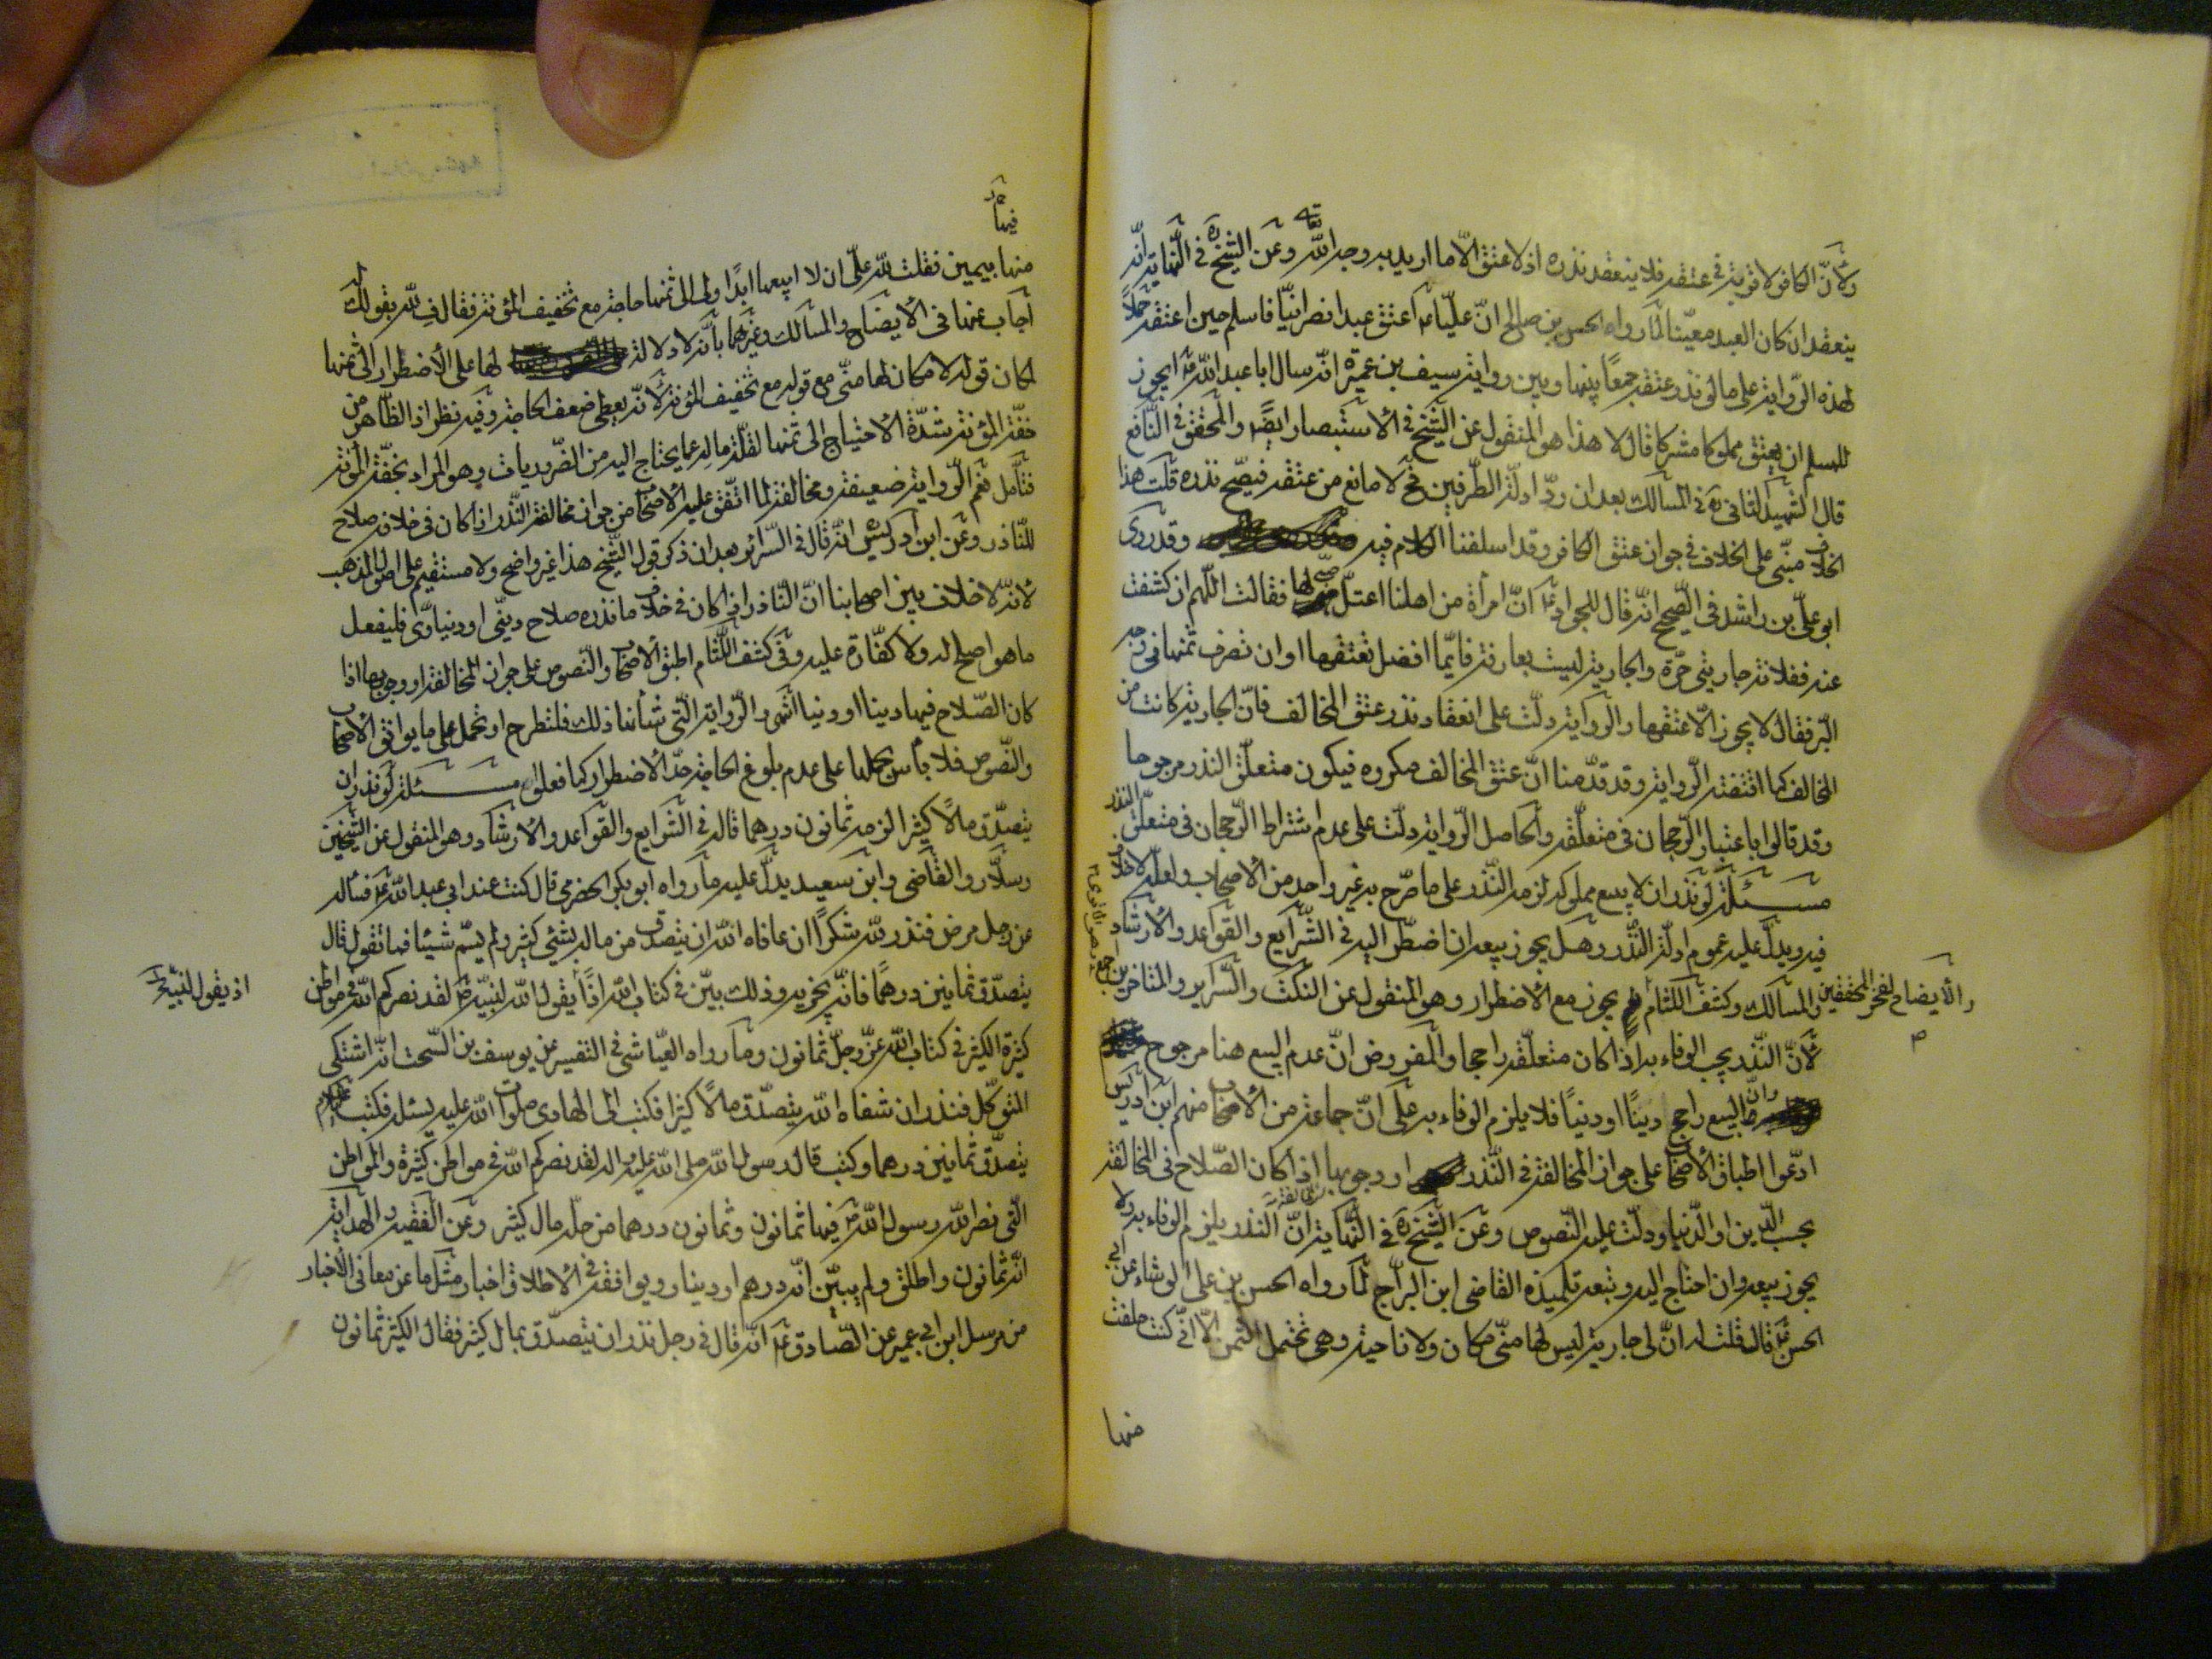 ولأنّ الكافر لا قربة في عتقه فلا ينعقد نذره اذ لا عتق الّا ما اريد به وجه الله تعالى وعن الشيخ ره في النّهاية انّه
ينعقد ان كان العبد معيّنا لما رواه الحسن بن صالح انّ عليّا ع اعتق عبدا نصرانيّا فاسلم حين اعتقه حملاً
لهذه الرّواية على ما لو نذر عتقه جمعاً بينها وبين رواية سيف بن عميرة انّه سال ابا عبد الله ع ايجوز
للمسلم ان يعتق مملوكا مشركا قال لا هذا هو المنقول عن الشّيخ في الأستبصار ايضًا والمحقق في النّافع
قال الشهيد الثاني ره في المسالك بعد ان ردّ ادلّة الطّرفين فح لا مانع من عتقه فيصّح نذره قلت هذا
الخلاف مبنّي على الخلاف في جواز عتق الكافر وقد اسلفنا الكلام فيه وقد روى
ابو علي بن راشد في الصّحيح انّه قال للجواد ع انّ امرأة من اهلنا اعتلّ صبي لها فقالت اللّهم ان كشفت
عنه ففلانة جاريتي حرّة والجارية ليست بعارفة فايّما افضل تعتقها او ان تصرف ثمنها في وجه
البّر فقال لا يجوز الّا عتقها والرواية دلّت على انعقاد نذر عتق المخالف فانّ الجارية كانت من
المخالف كما اقتضته الرّواية وقد قدّمنا انّ عتق المخالف مكروه فيكون متعلّق النذر مرجوحا
وقد قالوا باعتبار الرّجحان في متعلّقه والحاصل الرّواية دلّت على عدم اشتراط الرّجحان في متعلّق النذر
مسئلة لو نذر ان لا يبيع مملوكه لزمه النّذر على ما صّرح به غير واحد من الأصحاب ولعلّه لا خلاف
فيه ويدلّ عليه عموم ادلّة النّذر وهل يجوز بيعه ان اضطّر اليه في الشّرايع والقواعد والأرشاد
والأيضاح لفخر المحققين والمسالك وكشف اللثام يجوز مع الأضطرار وهو المنقول عن النكت والسّراير والمتاخرين
لأنّ النّذر يجب الوفاء به اذا كان متعلّقه راجحا والمفروض انّ عدم البيع هنا مرجوح
وانّ البيع راجح دينًا او دنيًا فلا يلزم الوفاء به على انّ جماعة من الأصحاب منهم ابن ادريس
ادّعوا اطباق الأصحاب على جواز المخالفة في النّذر او وجوبها اذا كان الصّلاح في المخالفة
بحسب الّدين او الّدنيا ودلّت عليه النّصوص وعن الشّيخ ره في النّهاية انّ النذر يلزم الوفاء به ولا
يجوز بيعه وان احتاج اليه وتبعه تلميذه القاضي ابن البرّاج لما رواه الحسن بن علي الوشاء عن ابي
الحسن ع قال قلت له انّ لي جارية ليس لها منّي مكان ولا ناحية وهي تحتمل الثمن الّا انّي كنت حلفت
منها
فيها
منها بيمين فقلت لله علّي ان لا ابيعها ابدًا ولي الى ثمنها حاجة مع تخفيف المؤنة فقال فِ لله بقولك له
اجاب عنها في الأيضاح والمسالك وغيرهما بأنّه لا دلالة لها على الأضطرار الى ثمنها
لمكان قوله لا مكان لها منّي مع قوله مع تخفيف المؤنة لأنّه يعطي ضعف الحاجة وفيه نظر اذ الظّاهر من
خفّة المؤنة شدّة الأحتياج الى ثمنها لقلّة ماله عما يحتاج اليه من الضّروريات وهو المراد بخفّة المؤنة
فتأمل نعم الّرواية ضعيفة ومخالفة لما اتّفق عليه الأصحاب من جواز مخالفة النّذر اذا كان في خلافه صلاح
للنّاذر وعن ابن ادريس انّه قال في السّرائر بعد ان ذكر قول الشّيخ هذا غير واضح ولا مستقيم على اصول المذهب
لأنّه لا خلاف بين اصحابنا انّ النّاذر اذا كان في خلاف ما نذره صلاح دينّي او دنياوّي فليفعل
ما هو اصلح له ولا كفّارة عليه وفي كشف اللّثام اطبق الأصحاب والنّصوص على جواز المخالفة او وجوبها اذا
كان الصّلاح فيها دينا او دنيا انتهى والّرواية الّتي شأنها ذلك فلتطرح او تحمل على ما يوافق الأصحاب
والنّصوص فلا بأس بحملها على عدم بلوغ الحاجة حدّ الأضطرار كما فعلوا مسئلة لو نذر ان
يتصدّق مالاً كثيرا لزمه ثمانون درهما قاله في الشّرايع والقواعد والأرشاد وهو المنقول عن الشّيخين
وسلّار والقاضي وابن سعيد يدلّ عليه ما رواه ابو بكر الحضرمي قال كنت عند ابي عبد الله ع فساله
عن رجل مرض فنذر لله شكرًا ان عافاه الله ان يتصدّق من ماله بشئ كثير ولم يسّم شيئا فما تقول قال
يتصدّق ثمانين درهمًا فانّه يجزيه وذلك بيّن في كتاب الله اذ يقول الله لنبيّه ص لقد نصركم الله في مواطن
اذ يقول لنبيّه
كثيرة الكثير في كتاب الله عزّ وجلّ ثمانون وما رواه العيّاشي في التفسير عن يوسف بن السّخت انّه اشتكى
المتوكّل فنذر ان شفاه الله يتصدّق مالاً كثيرا فكتب الى الهادي صلوات الله عليه يسئله فكتب عليه السلام
يتصدّق ثمانين درهما وكتب قال لرسول الله صلى الله عليه واله لقد نصركم الله في مواطن كثيرة والمواطن
الّتي نصر الله رسول الله ص فيها ثمانون وثمانون درهما من حلّه مال كثير وعن الفقيه والهداية
انّه ثمانون واطلق ولم يبيّن انّه درهم او دينار ويوافقه في الأطلاق اخبار مثل ما عن معاني الأخبار
من مرسل ابن ابي عمير عن الصّادق ع انّه قال في رجل نذر ان يتصدّق بمال كثير فقال الكثير ثمانون